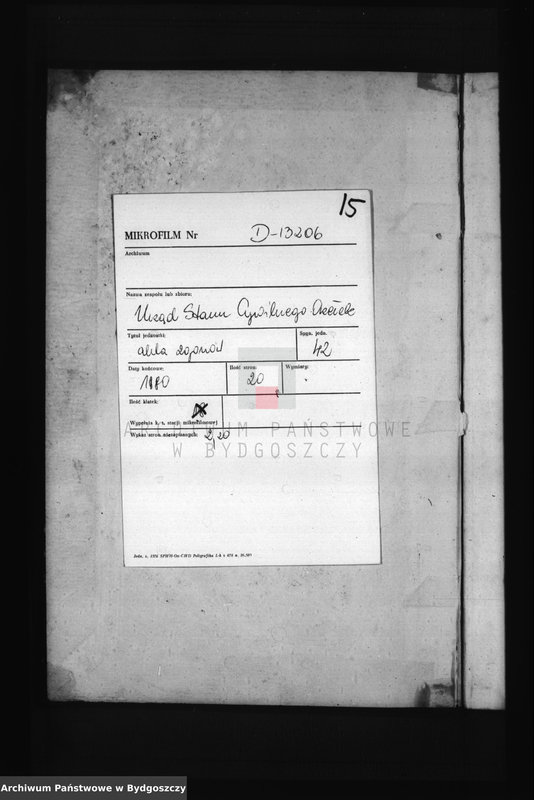 15
MIKROFILM Nr D-13206
Archiwum
Nazwa zespołu lub zbioru:
Urząd Stanu Cywilnego Osiek
Tytuł jednostki: Sygn. jedn.
akta zgonów 42
Daty końcowe: Ilość stron: Wymiary:
1880 20
Ilość klatek:
18
Wypełnia k. t. stacji mikrofilmowej
Wykaz stron niezapisanych: 2, 20
ARCHIWUM PAŃSTWOWE
W BYDGOSZCZY
Archiwum Państwowe w Bydgoszczy